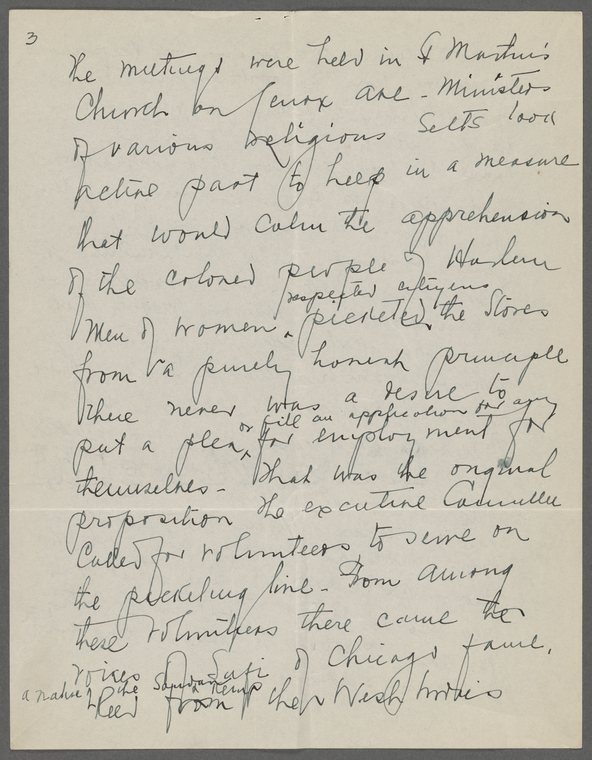 3
The meetings were held in St Martin's
Church on Lenox Ave - Ministers
of various religious Sects took
active part to help in a measure
that would calm the apprehension
of the colored people of Harlem
respected citizens
Men & women picketed the Stores
from a purely honest principle
There never was a desire to
or fill an application for any
put a plea for employment for
themselves - That was the original
proposition The executive Committee
Called for volunteers to serve on
the picketing line - From among
these Volunteers there came the
voices of Sufi of Chicago fame,
a native of the Sandan Kemp
Reed from the West Indies